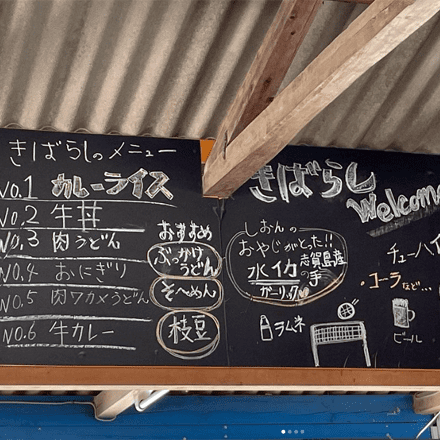 きばらしのメニュー
No.1 カレーライス
No.2 牛丼
No.3 肉うどん
No.4 おにぎり
No.5 肉ワカメうどん
No.6 牛カレー
おすすめ
ぶっかけ
うどん
そーめん
枝豆
きばらし
Welcome
しおんの
おやじがとった!!
水イカ
志賀島産
の幸
ガーリック
ラムネ
チューハイ
・コーラなど...
ビール